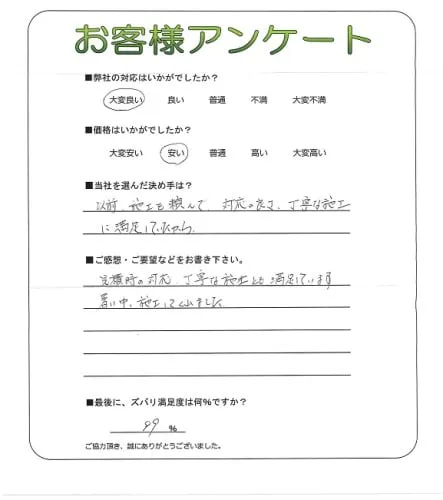 お客様アンケート
■弊社の対応はいかがでしたか?
大変良い 良い 普通 不満 大変不満
■価格はいかがでしたか?
大変安い 安い 普通 高い 大変高い
■当社を選んだ決め手は?
以前、施工を頼んで、対応の良さ、丁寧な施工
に満足していたから。
■ご感想・ご要望などをお書き下さい。
見積時の対応、丁寧な施工とも満足しています
暑い中、施工して下さいました
■最後に、ズバリ満足度は何%ですか?
99 %
ご協力頂き、誠にありがとうございました。